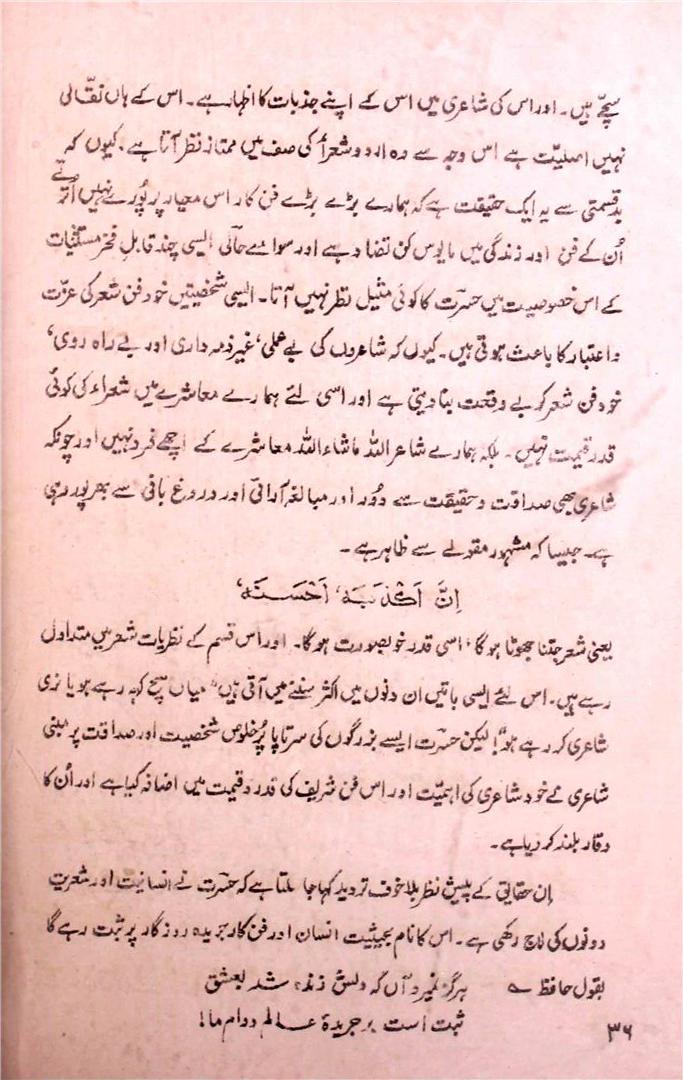 سچے ہیں۔ اور اس کی شاعری میں اس کے اپنے جذبات کا اظہار ہے۔ اس کے ہاں نقّالی
نہیں اصلیّت ہے اس وجہ سے وہ اردو شعرأ کی صف میں ممتاز نظر آتا ہے۔ کیوں کہ
بدقسمتی سے یہ ایک حقیقت ہے کہ ہمارے بڑے بڑے فن کار اس معیار پر پُورے نہیں اُترتے
اُن کے فن اور زندگی میں مایوس کن تضاد ہے اور سوائے حالؔی ایسی چند قابلِ فخر مستثنیات
کے اس خصوصیت میں حسرؔت کا کوئی مثیل نظر نہیں آتا۔ ایسی شخصیتیں خود فن شعر کی عزّت
و اعتبار کا باعث ہوتی ہیں۔ کیوں کہ شاعروں کی بے عملی، غیر ذمہ داری اور بے راہ روی،
خود فن شعر کو بے وقعت بنا دیتی ہے اور اسی لئے ہمارے معاشرے میں شعراء کی کوئی
قدر قیمت نہیں۔ بلکہ ہمارے شاعر اللہ ماشاءاللہ معاشرے کے اچھے فرد نہیں اور چونکہ
شاعری بھی صداقت و حقیقت سے دُور اور مبالغہ آرائی اور دروغ بافی سے بھرپور رہی
ہے۔ جیسا کہ مشہور مقولے سے ظاہر ہے۔
اِنَّ اَکْذَبَہٗ، اَحْسَنَہٗ،
یعنی شعر جتنا جھوٹا ہوگا، اسی قدر خوبصورت ہوگا۔ اور اس قسم کے نظریات شعر میں متداول
رہے ہیں۔ اس لئے ایسی باتیں ان دنوں میں اکثر سننے میں آتی ہیں "میاں سچ کہہ رہے ہو یا نری
شاعری کر رہے ہو"! لیکن حسرؔت ایسے بزرگوں کی سرتاپا پُرخلوص شخصیت اور صداقت پر مبنی
شاعری نے خود شاعری کی اہمیّت اور اس فن شریف کی قدر و قیمت میں اضافہ کیا ہے اور اُن کا
وقار بلند کر دیا ہے۔
اِن حقایق کے پیش نظر بلا خوف تردید کہا جا سکتا ہے کہ حسرؔت نے انسانیت اور شعریت
دونوں کی لاج رکھی ہے۔ اس کا نام بحیثیت انسان اور فن کار جریدہ روزگار پر ثبت رہے گا
بقول حافظ ؎ ہرگز نمیرد آں کہ دلش زندہ شد بعشق
ثبت است بر جریدۂ عالم دوام ما!
۳۶